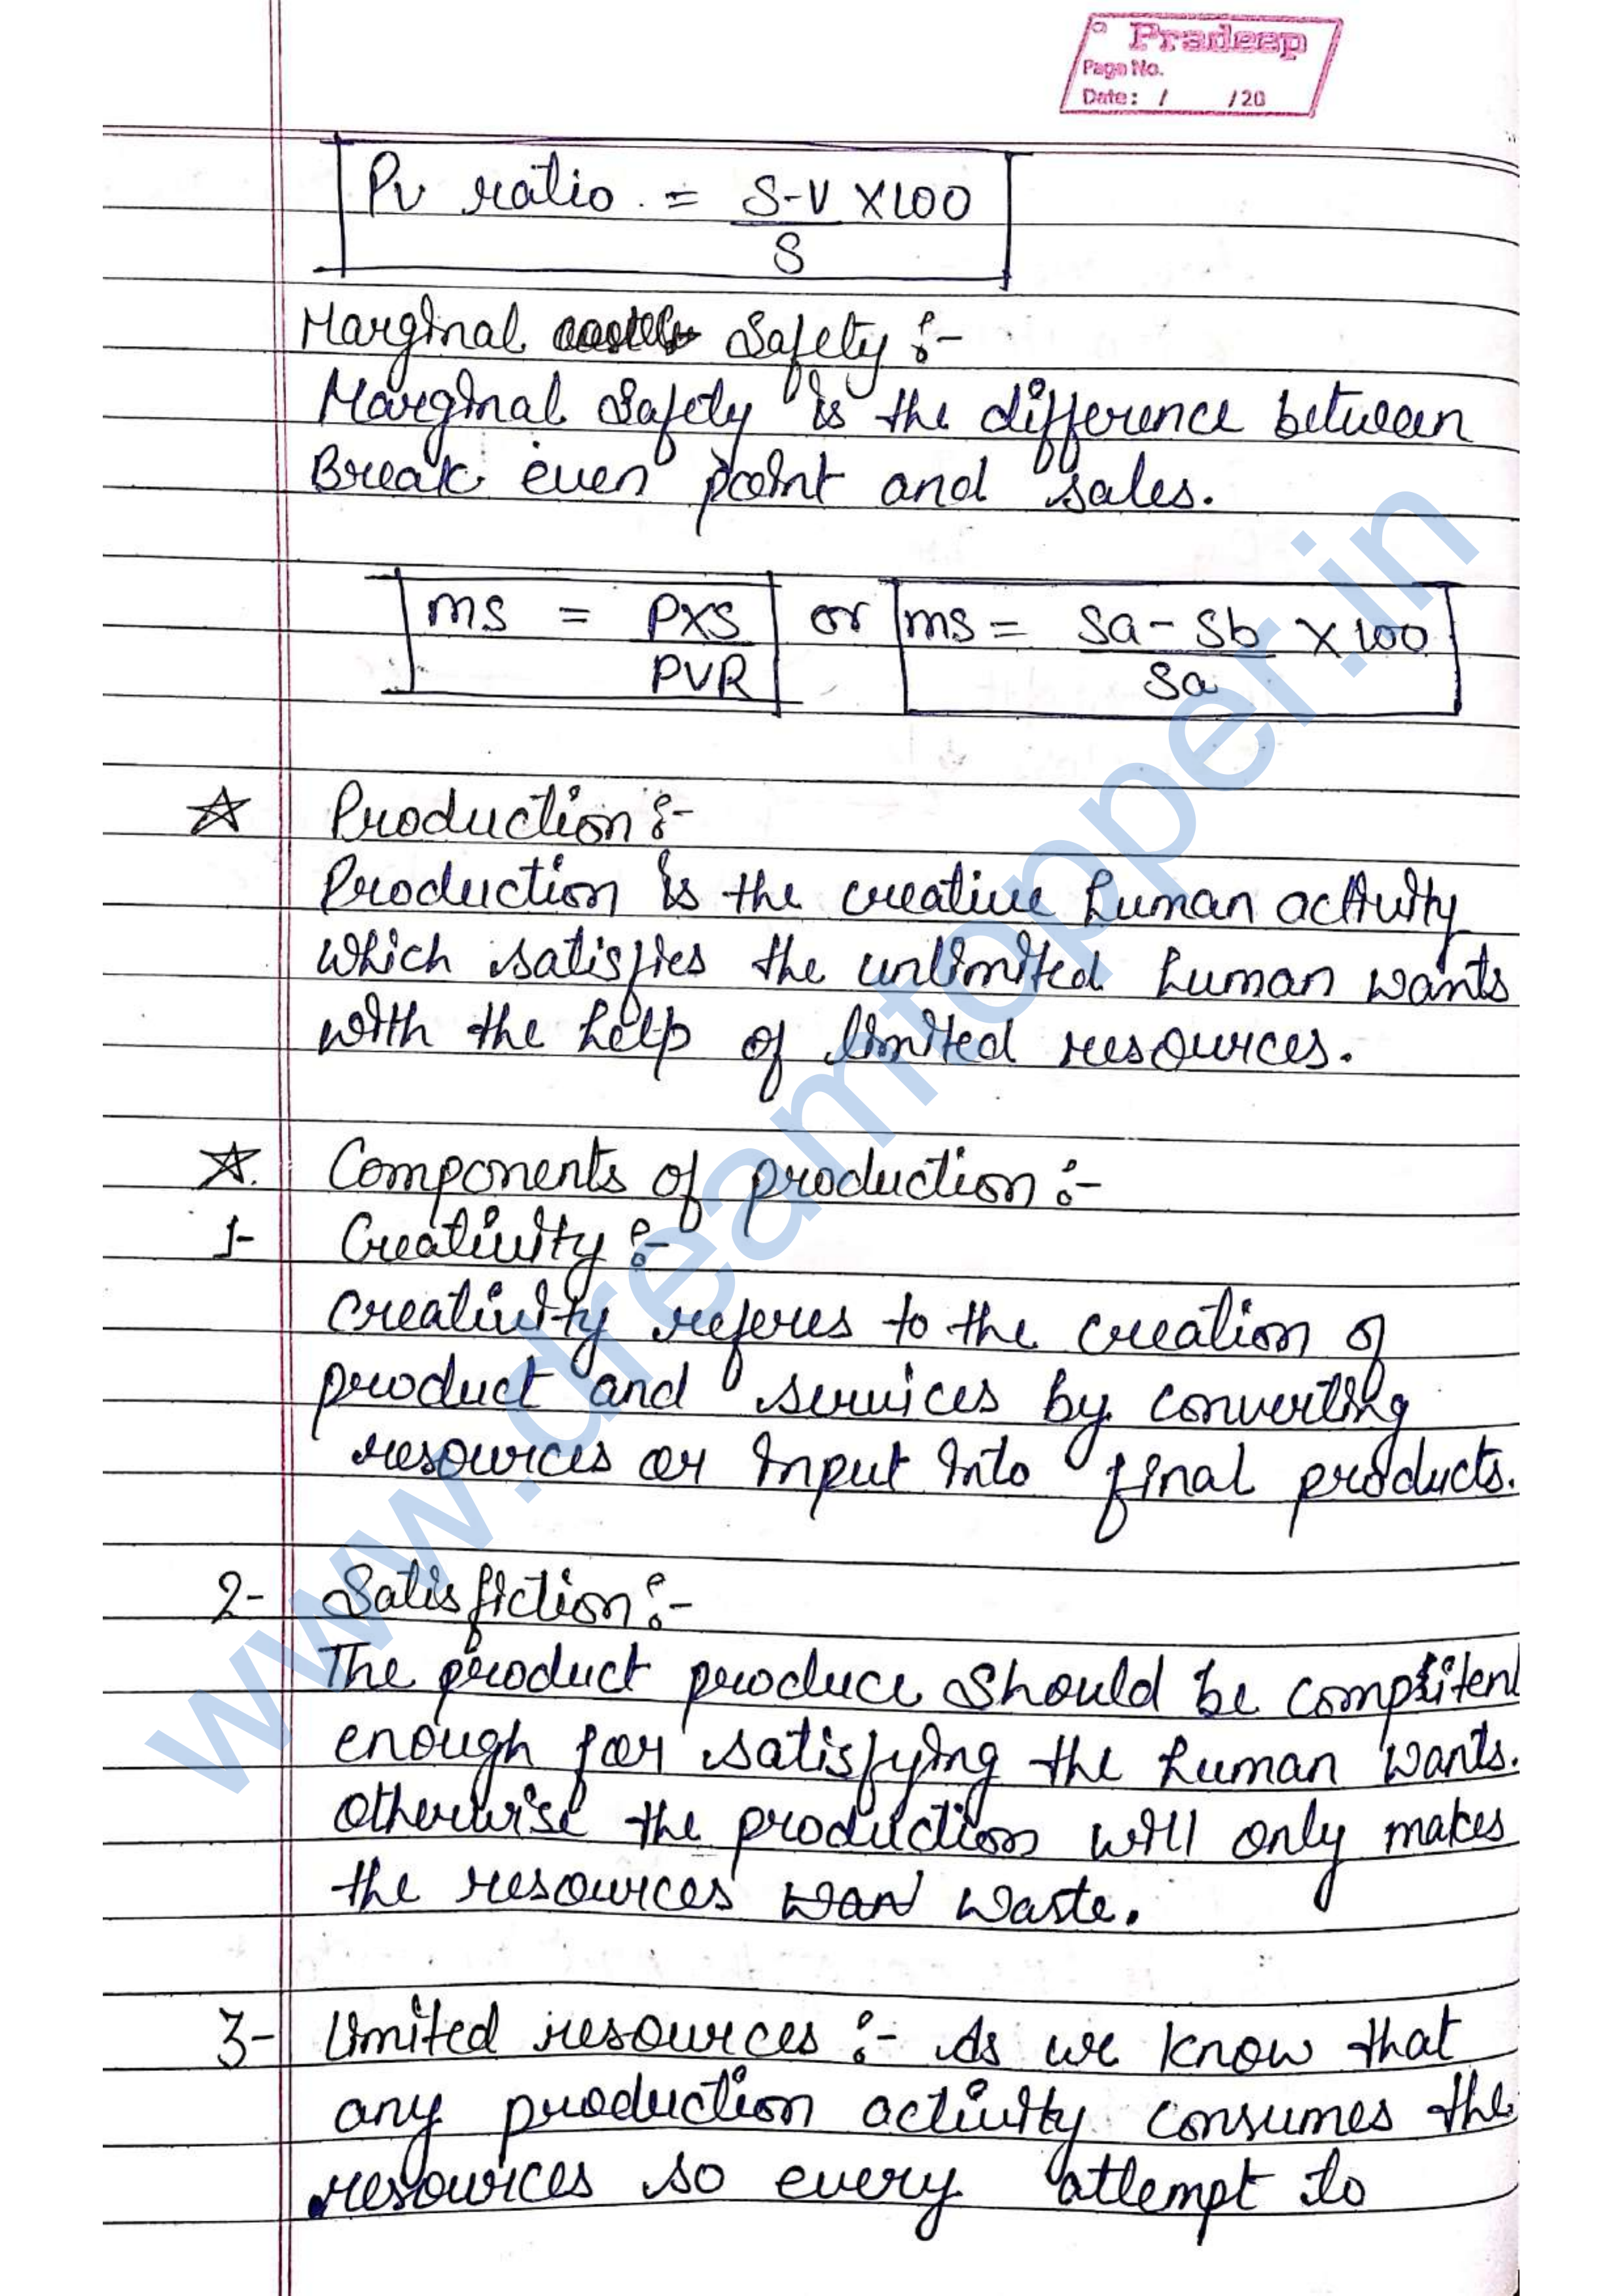 Pradeep
Page No.
Date: / /20
Pv ratio = S-V X100
S
Marginal Safety :-
Marginal Safety is the difference between
Break even point and sales.
ms = PXS or ms = Sa - Sb X 100
PVR Sa
☆ Production :-
Production is the creative human activity
which satisfies the unlimited human wants
with the help of limited resources.
☆. Components of production :-
1- Creativity :-
Creativity referes to the creation of
product and services by converting
resources or input into final products.
2- Satisfiction :-
The product produce should be
enough for satisfying the human wants.
otherwise the production will only makes
the resources waste.
3- Limited resources :- As we know that
any production activity consumes the
resources so every attempt to
www.dreamtopper.in